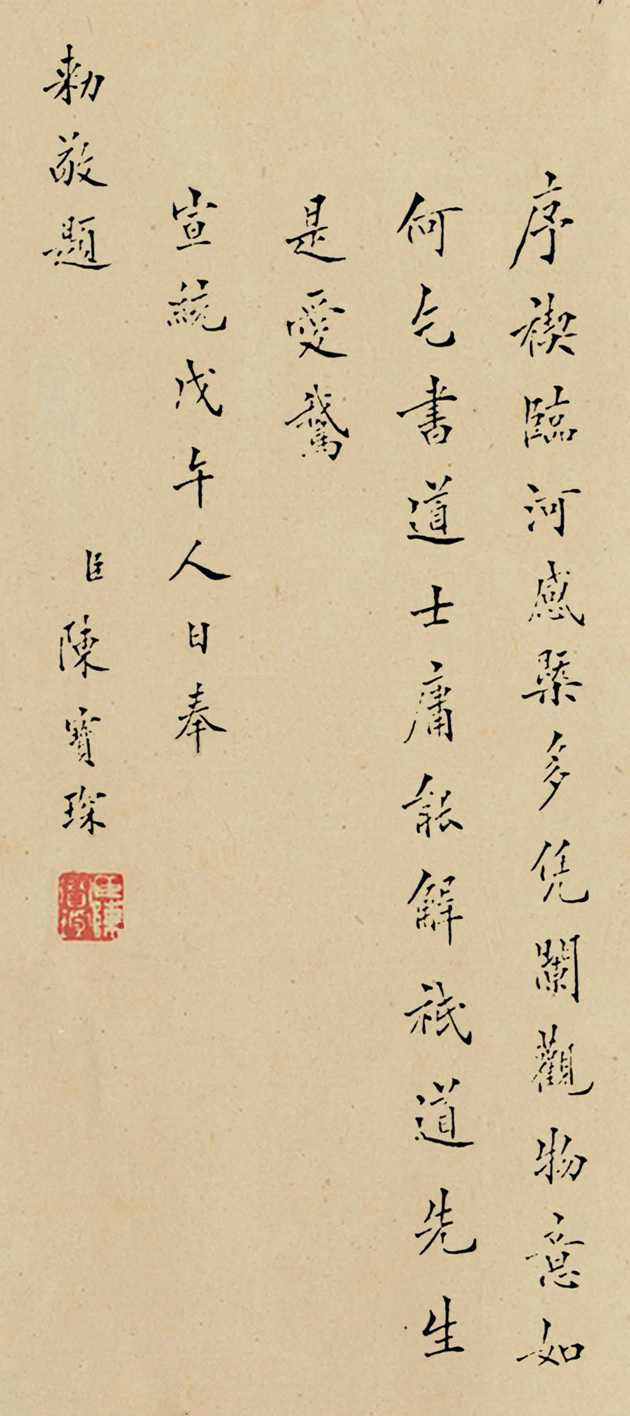 序禊臨河感槩多凭闌觀物意如
何乞書道士庸能解祇道先生
是愛鵞
宣統戊午人日奉
勅敬題
臣陳寶琛